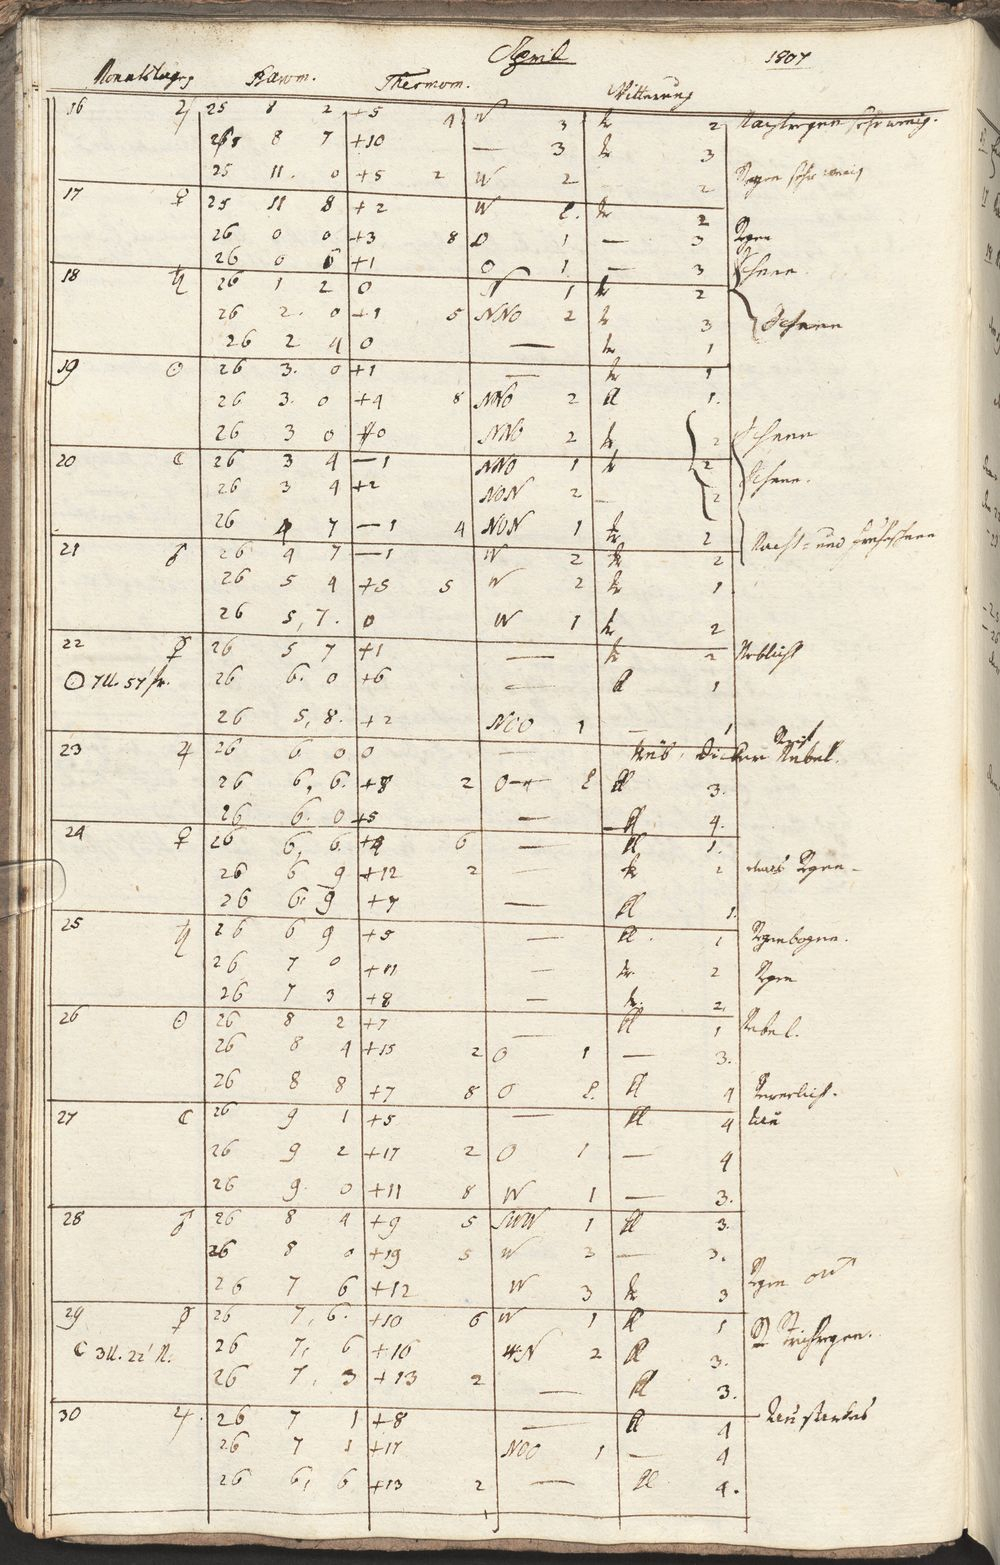 April 1807
Monatstage Barom. Thermom. Witterung
16 ♃ 25 8 2 +5 4 W 3 tr 2 Nachtregen sehr wenig.
8 7 +10 — 3 tr 3
25 11. 0 +5 2 W 2 2 Regen sehr wenig
17 ♀ 25 11 8 +2 W l. tr 2
26 0 0 +3 8 O 1 — 3 Regen
26 0 6 +1 O 1 — 3 Schnee.
18 ♄ 26 1 2 0 N 1 tr 2
26 2. 0 +1 5 NNO 2 tr 3 Schnee
26 2 4 0 — tr 1
19 ☉ 26 3. 0 +1 — tr 1
26 3. 0 +4 8 NNO 2 kl 1.
26 3 0 0 NNO 2 tr 2 Schnee
20 ☾ 26 3 4 —1 NNO 1 tr 2 Schnee.
26 3 4 +2 NON 2 — 2
26 4 7 —1 4 NON 1 tr 2 Nacht- und Frühschnee
21 ♂ 26 4 7 —1 W 2 tr 2
26 5 4 +5 5 W 2 tr 1
26 5, 7. 0 W 1 tr 2
22 ☿ 26 5 7 +1 — tr 2 Neblicht
☉ 7U. 57' fr. 26 6. 0 +6 — kl 1
26 5, 8. +2 NOO 1 — 1
23 ♃ 26 6 0 0 — trüb, dicker Nebel. Reif
26 6, 6. +8 2 O l kl 3.
26 6. 0 +5 — kl 4.
24 ♀ 26 6, 6. +4 6 — kl 1.
26 6 9 +12 2 — tr 2 etwas Regen
26 6. 9 +7 — kl 1.
25 ♄ 26 6 9 +5 — kl. 1 Regenbogen.
26 7 0 +11 — tr. 2 Regen
26 7 3 +8 — tr. 2
26 ☉ 26 8 2 +7 kl 1 Nebel.
26 8 4 +15 2 O 1 — 3.
26 8 8 +7 8 O l. kl 4
27 ☾ 26 9 1 +5 — kl 4 Tau
26 9 2 +17 2 O 1 — 4
26 9. 0 +11 8 W 1 — 3.
28 ♂ 26 8 4 +9 5 SWW 1 kl 3.
26 8 0 +19 5 W 3 — 3.
26 7 6 +12 W 3 tr 3 Regen
29 ☿ 26 7, 6. +10 6 W 1 kl 1
☾ 3U. 22' N. 26 7, 6 +16 N 2 kl 3. Strichregen.
26 7, 3 +13 2 — kl 3.
30 ♃. 26 7 1 +8 — kl 4 Tau starkes
26 7 1 +17 NOO 1 — 4
26 6, 6 +13 2 — kl 4.